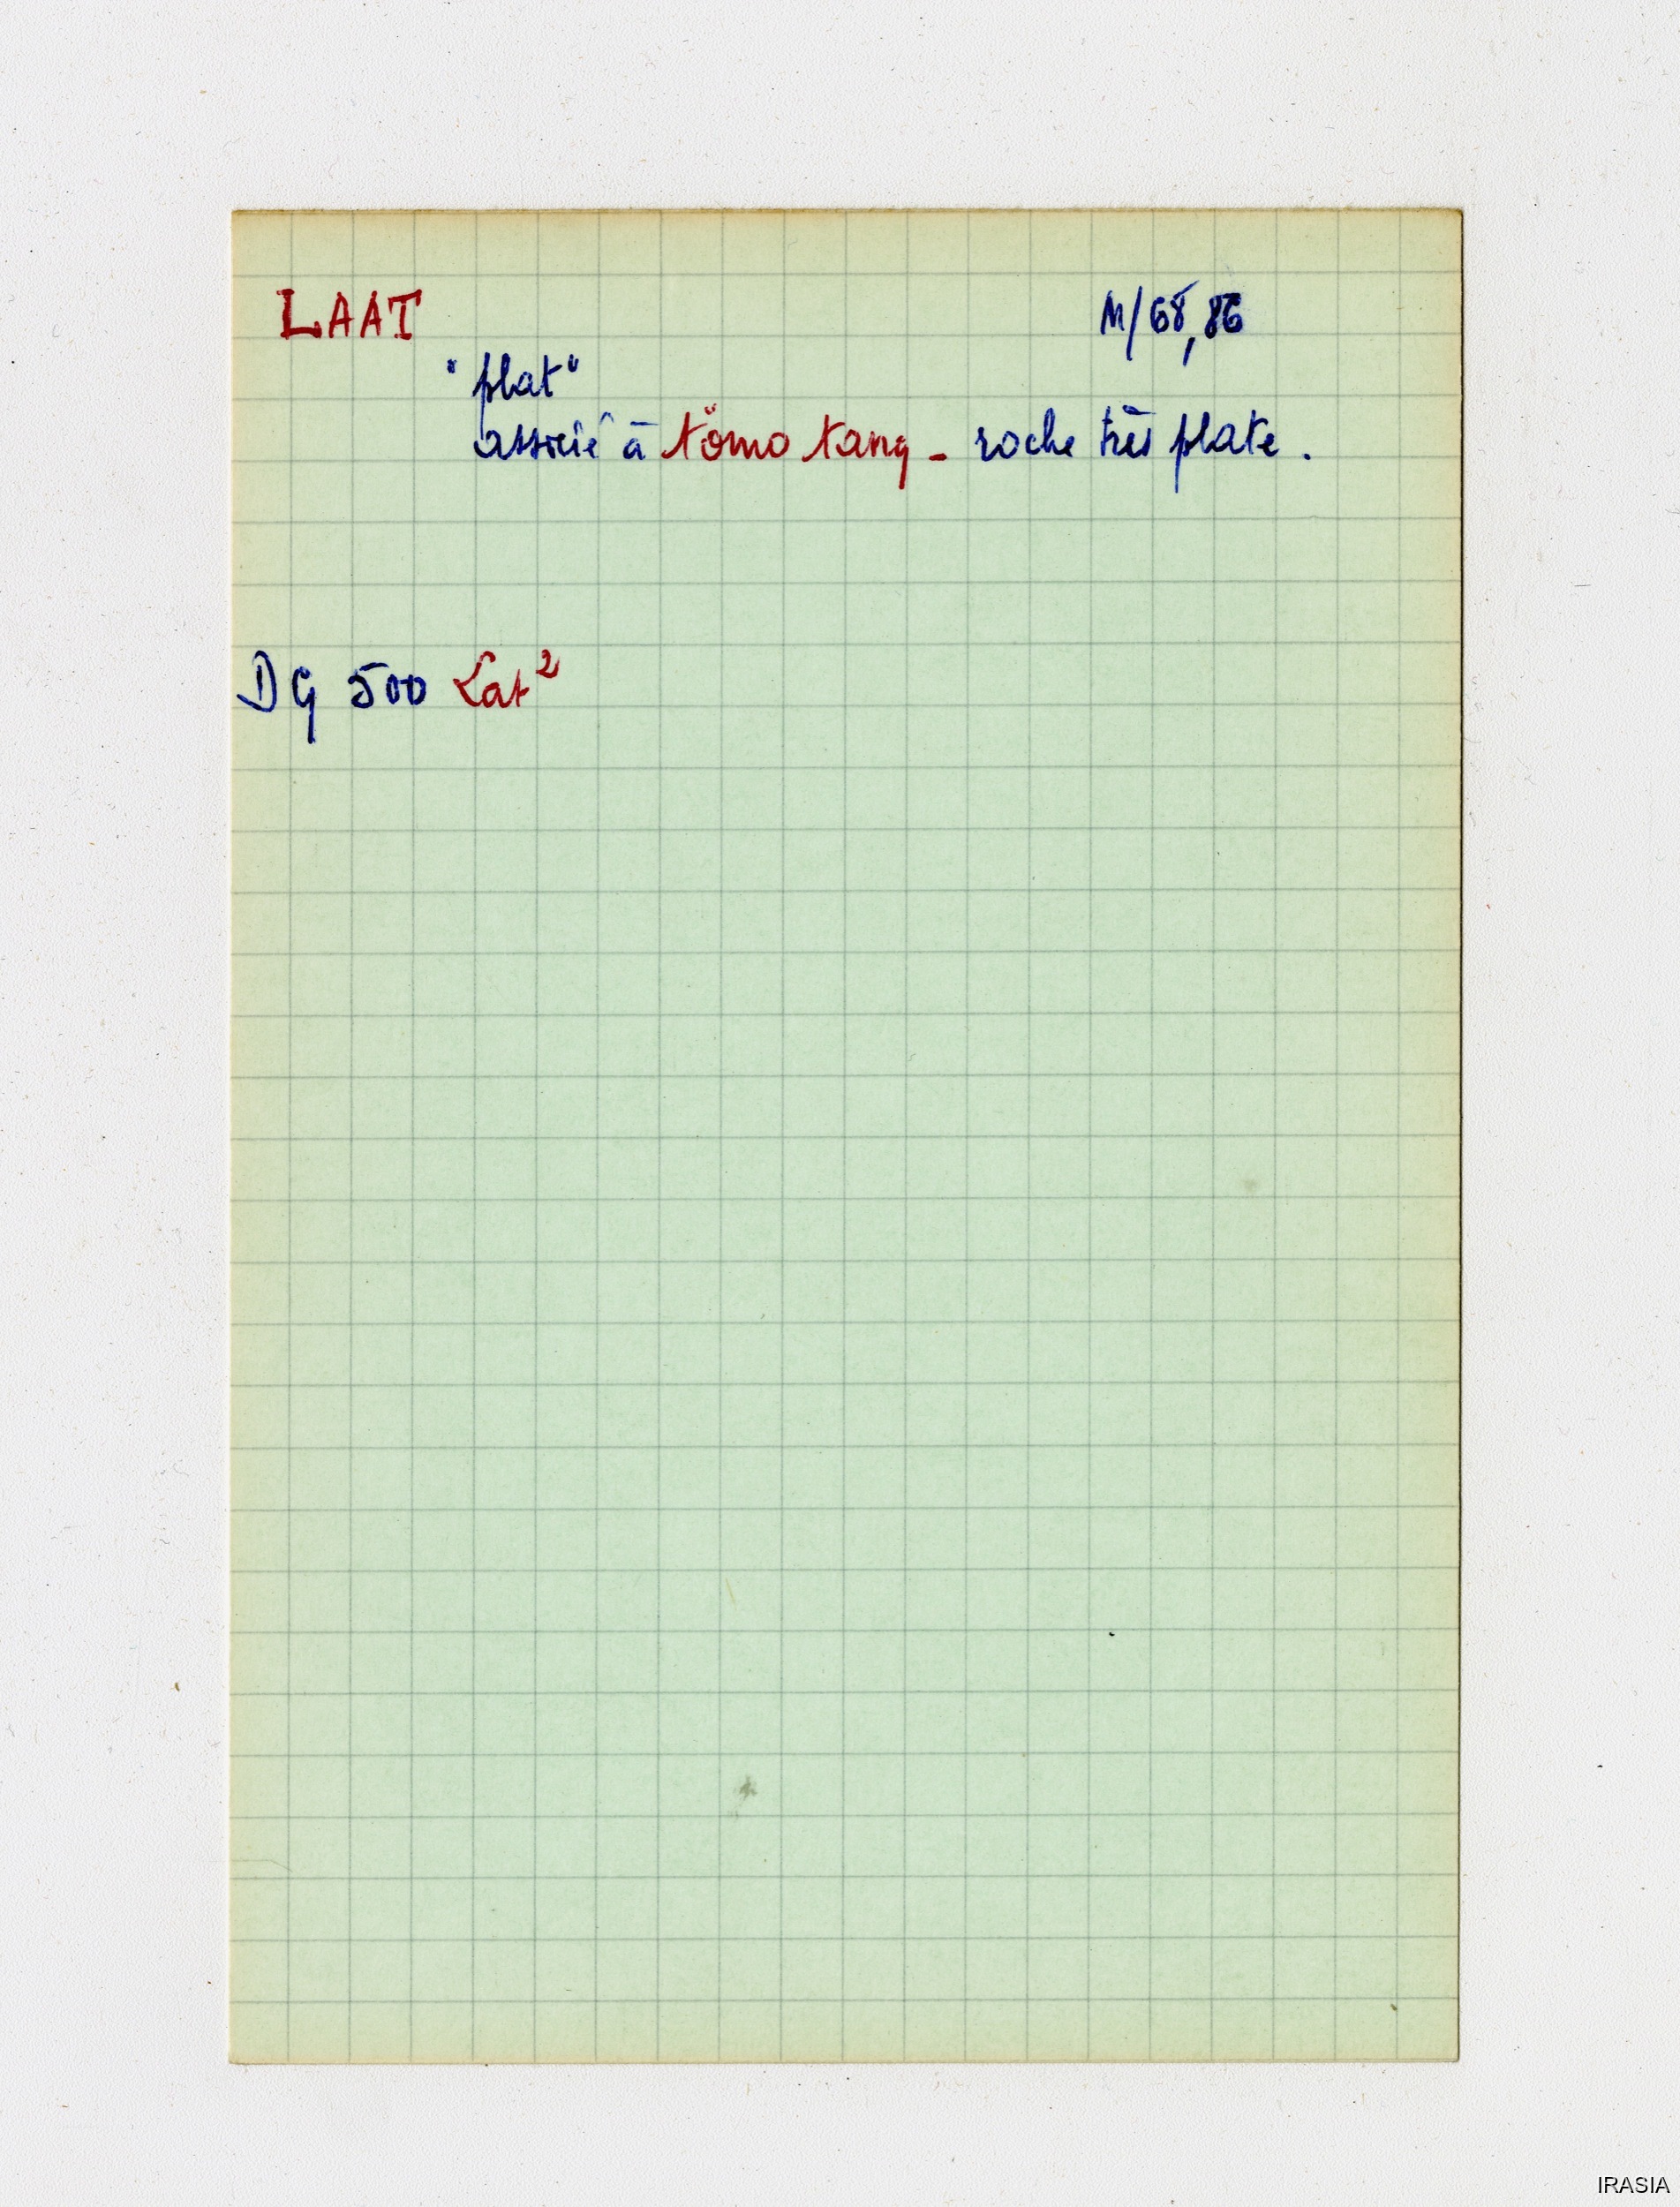 LAAT M/68,86
"plat"
associé à tömo tang - roche très plate.
DG 500 Lat²
IRASIA